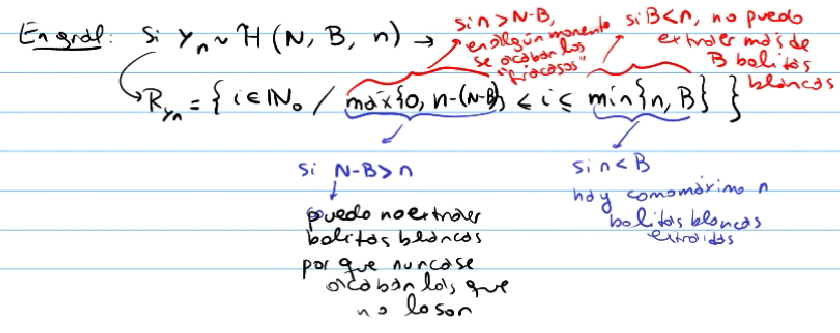 En gral: Si Yn ~ H (N, B, n) →
si n > N-B,
en algún momento
se acaban los
"fracasos"
si B < n, no puedo
extraer más de
B bolitas
blancas
R_Yn = { i ∈ IN₀ / máx{0, n-(N-B)} ≤ i ≤ min{n, B} }
si N-B > n
puedo no extraer
bolitas blancas
por que nunca se
acaban las que
no lo son
si n < B
hay como máximo n
bolitas blancas
extraidas